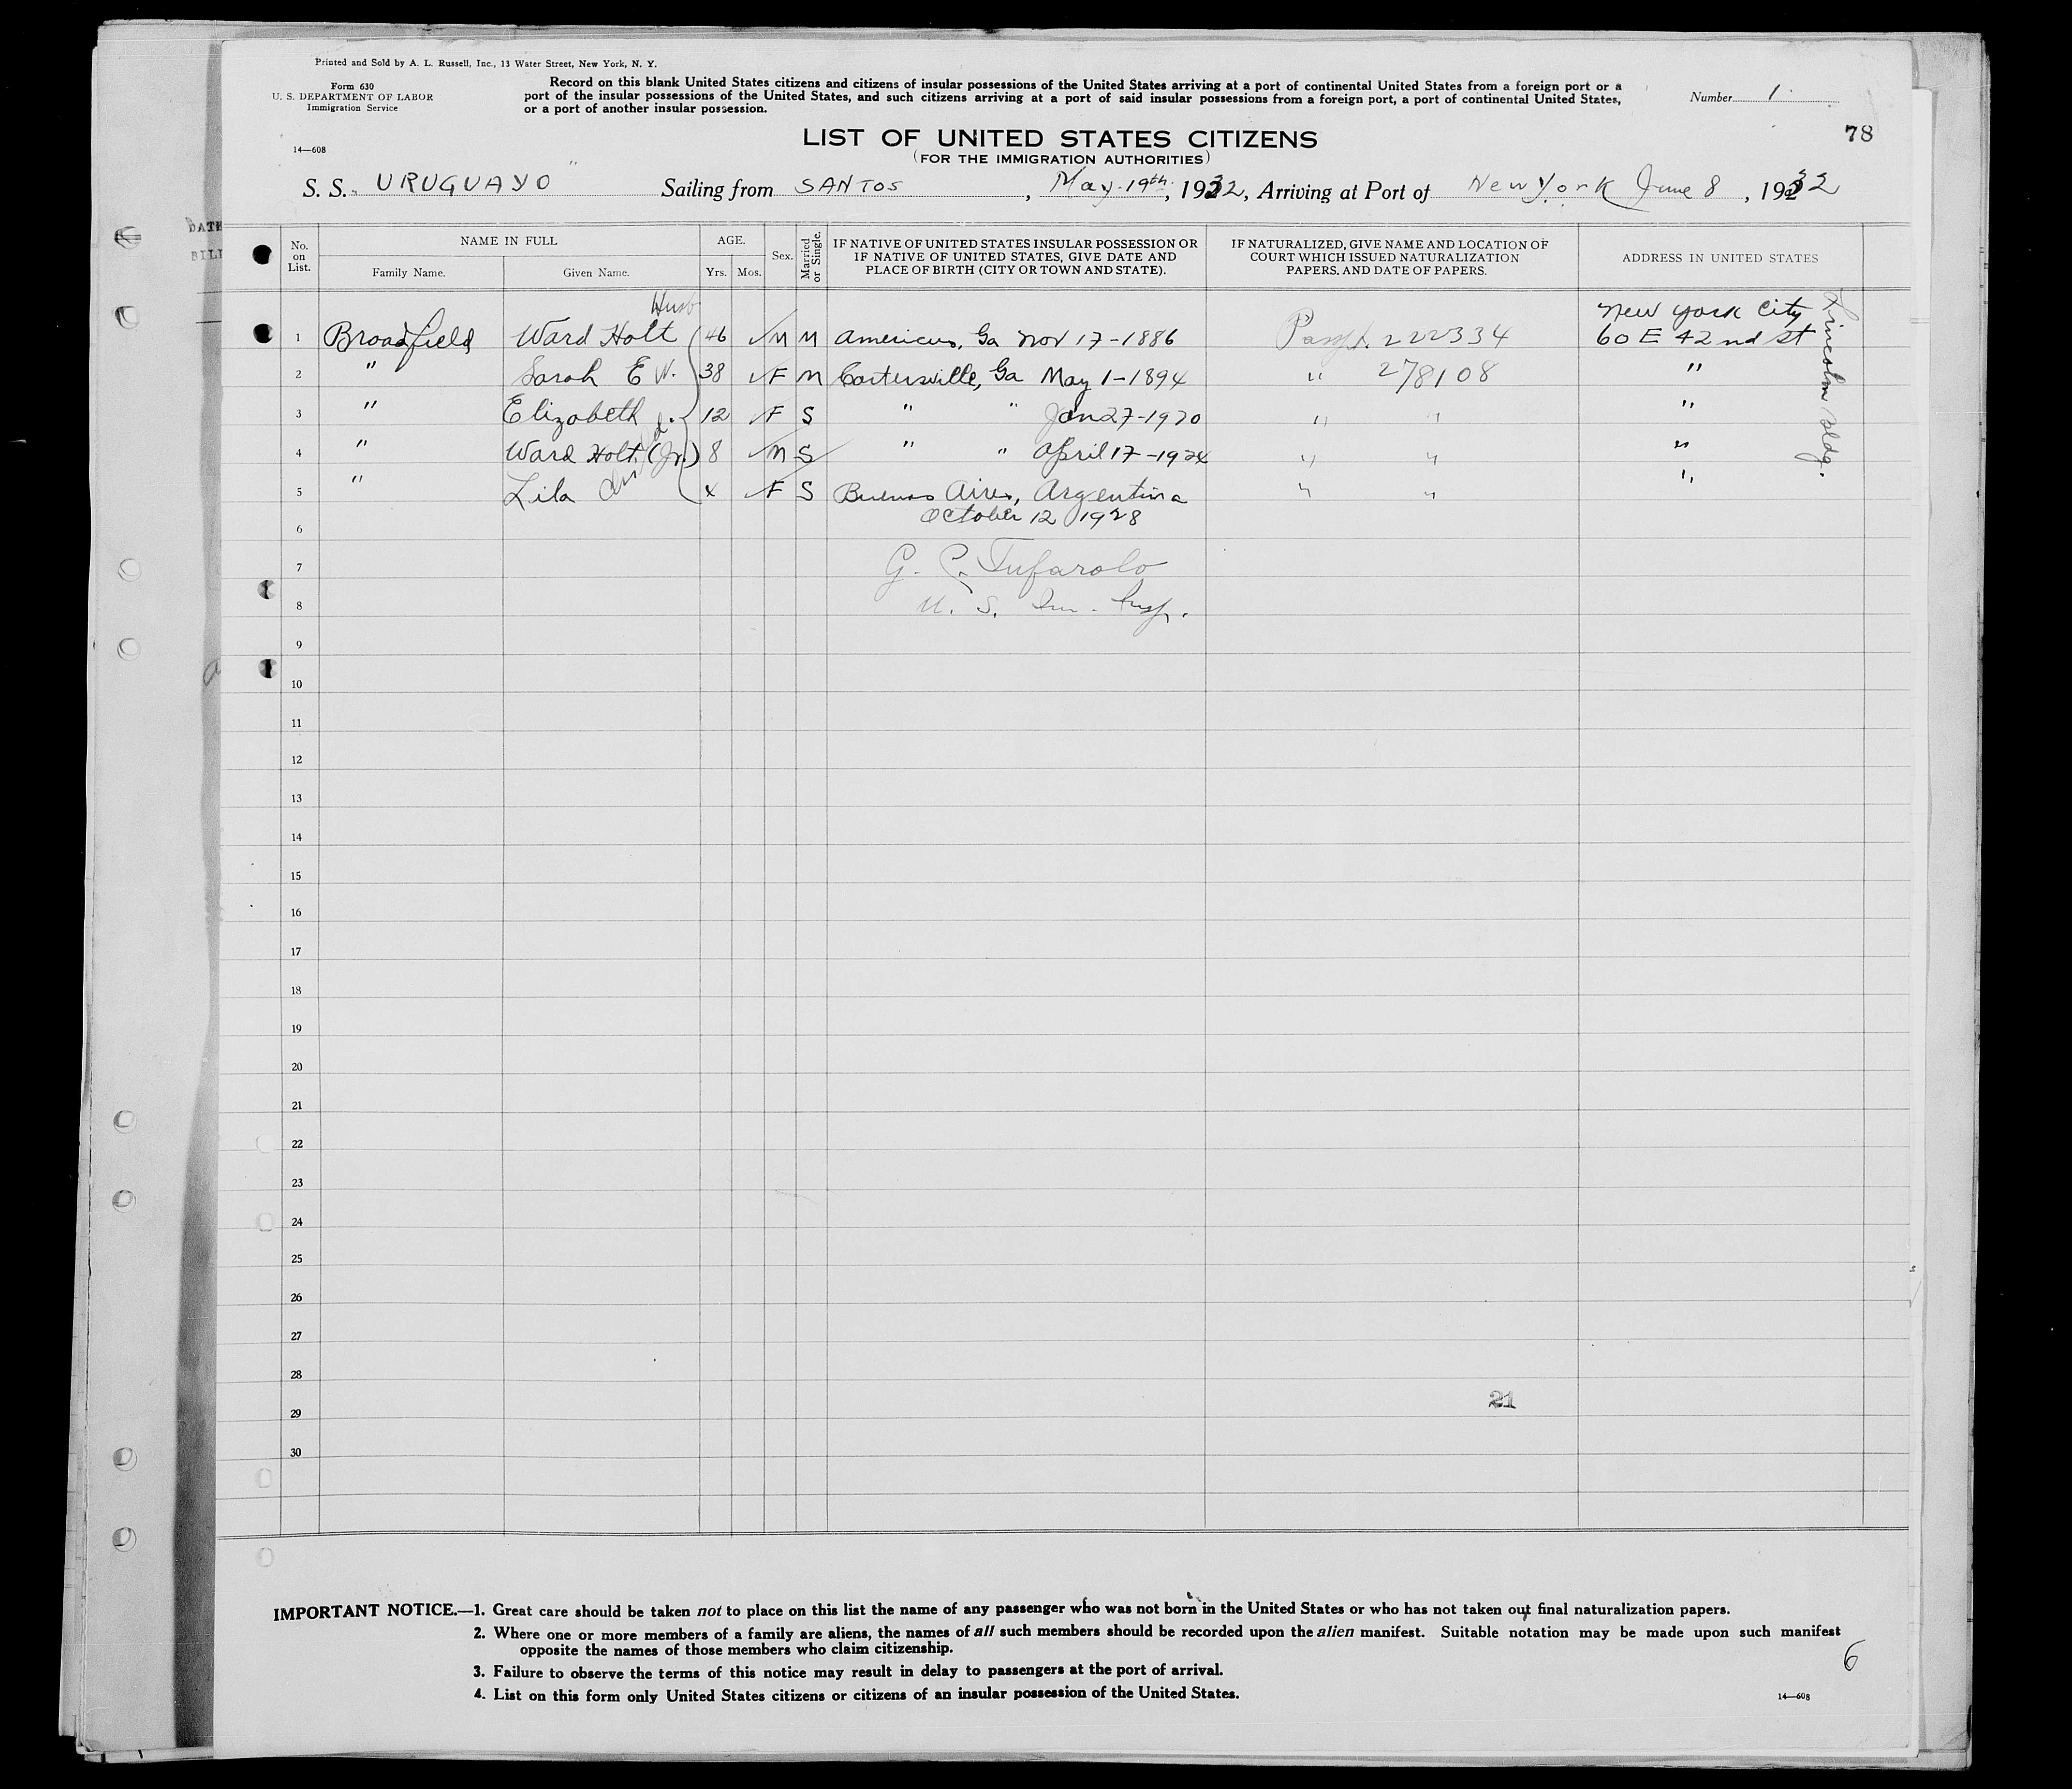 Printed and Sold by A. L. Russell, Inc., 13 Water Street, New York, N. Y.
Form 630
U. S. DEPARTMENT OF LABOR
Immigration Service
Record on this blank United States citizens and citizens of insular possessions of the United States arriving at a port of continental United States from a foreign port or a
port of the insular possessions of the United States, and such citizens arriving at a port of said insular possessions from a foreign port, a port of continental United States,
or a port of another insular possession.
Number 1
78
14—608
LIST OF UNITED STATES CITIZENS
(FOR THE IMMIGRATION AUTHORITIES)
S. S. URUGUAYO Sailing from SANTOS, May 19th, 1932, Arriving at Port of New York June 8, 1932
No. on List.
NAME IN FULL
Family Name. Given Name.
AGE.
Yrs. Mos.
Sex.
Married or Single.
IF NATIVE OF UNITED STATES INSULAR POSSESSION OR
IF NATIVE OF UNITED STATES, GIVE DATE AND
PLACE OF BIRTH (CITY OR TOWN AND STATE).
IF NATURALIZED, GIVE NAME AND LOCATION OF
COURT WHICH ISSUED NATURALIZATION
PAPERS, AND DATE OF PAPERS.
ADDRESS IN UNITED STATES
New York City
1 Broadfield Ward Holt 46 M M Americus, Ga Nov 17-1886 Passpt. 222334 60 E 42nd St
Lincoln Bldg.
2 " Sarah E W. 38 F M Cartersville, Ga May 1-1894 " 278108 "
3 " Elizabeth 12 F S " " Jan 27-1920 " " "
4 " Ward Holt (Jr.) 8 M S " " April 17-1924 " " "
5 " Lila x F S Buenos Aires, Argentina " " "
6 October 12 1928
7 G. P. Tufarolo
8 U. S. Im. Insp.
9
10
11
12
13
14
15
16
17
18
19
20
21
22
23
24
25
26
27
28
21
29
30
IMPORTANT NOTICE.—1. Great care should be taken not to place on this list the name of any passenger who was not born in the United States or who has not taken out final naturalization papers.
2. Where one or more members of a family are aliens, the names of all such members should be recorded upon the alien manifest. Suitable notation may be made upon such manifest
opposite the names of those members who claim citizenship.
3. Failure to observe the terms of this notice may result in delay to passengers at the port of arrival.
4. List on this form only United States citizens or citizens of an insular possession of the United States.
6
14—608